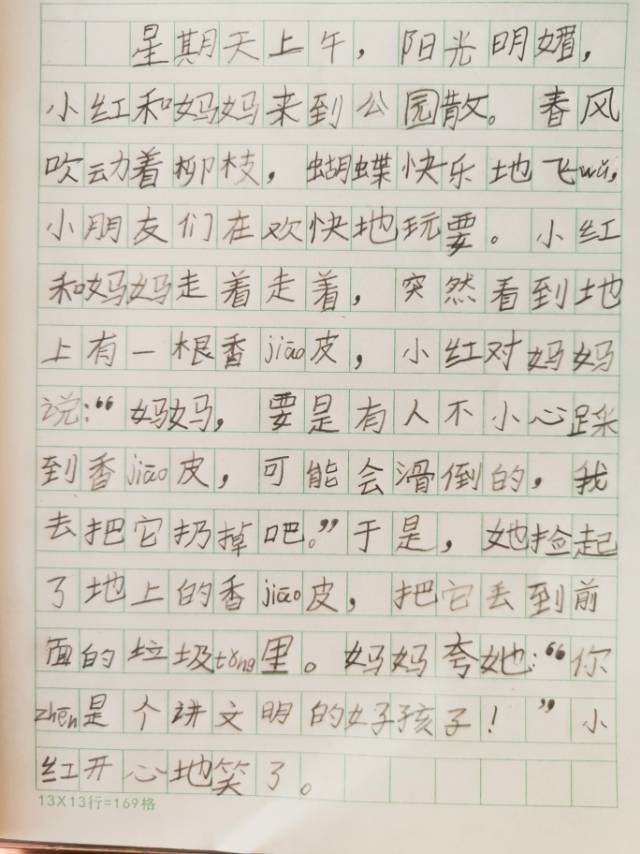 星期天上午，阳光明媚，
小红和妈妈来到公园散。春风
吹动着柳枝，蝴蝶快乐地飞wǔ，
小朋友们在欢快地玩耍。小红
和妈妈走着走着，突然看到地
上有一根香jiāo皮，小红对妈妈
说：“妈妈，要是有人不小心踩
到香jiāo皮，可能会滑倒的，我
去把它扔掉吧。”于是，她捡起
了地上的香jiāo皮，把它丢到前
面的垃圾tǒng里。妈妈夸她：“你
zhēn是个讲文明的好孩子！”小
红开心地笑了。
13X13行=169格